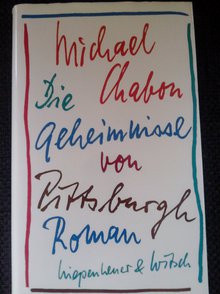 Michael
Chabon
Die
Geheimnisse
von
Pittsburgh
Roman
Kiepenheuer & Witsch